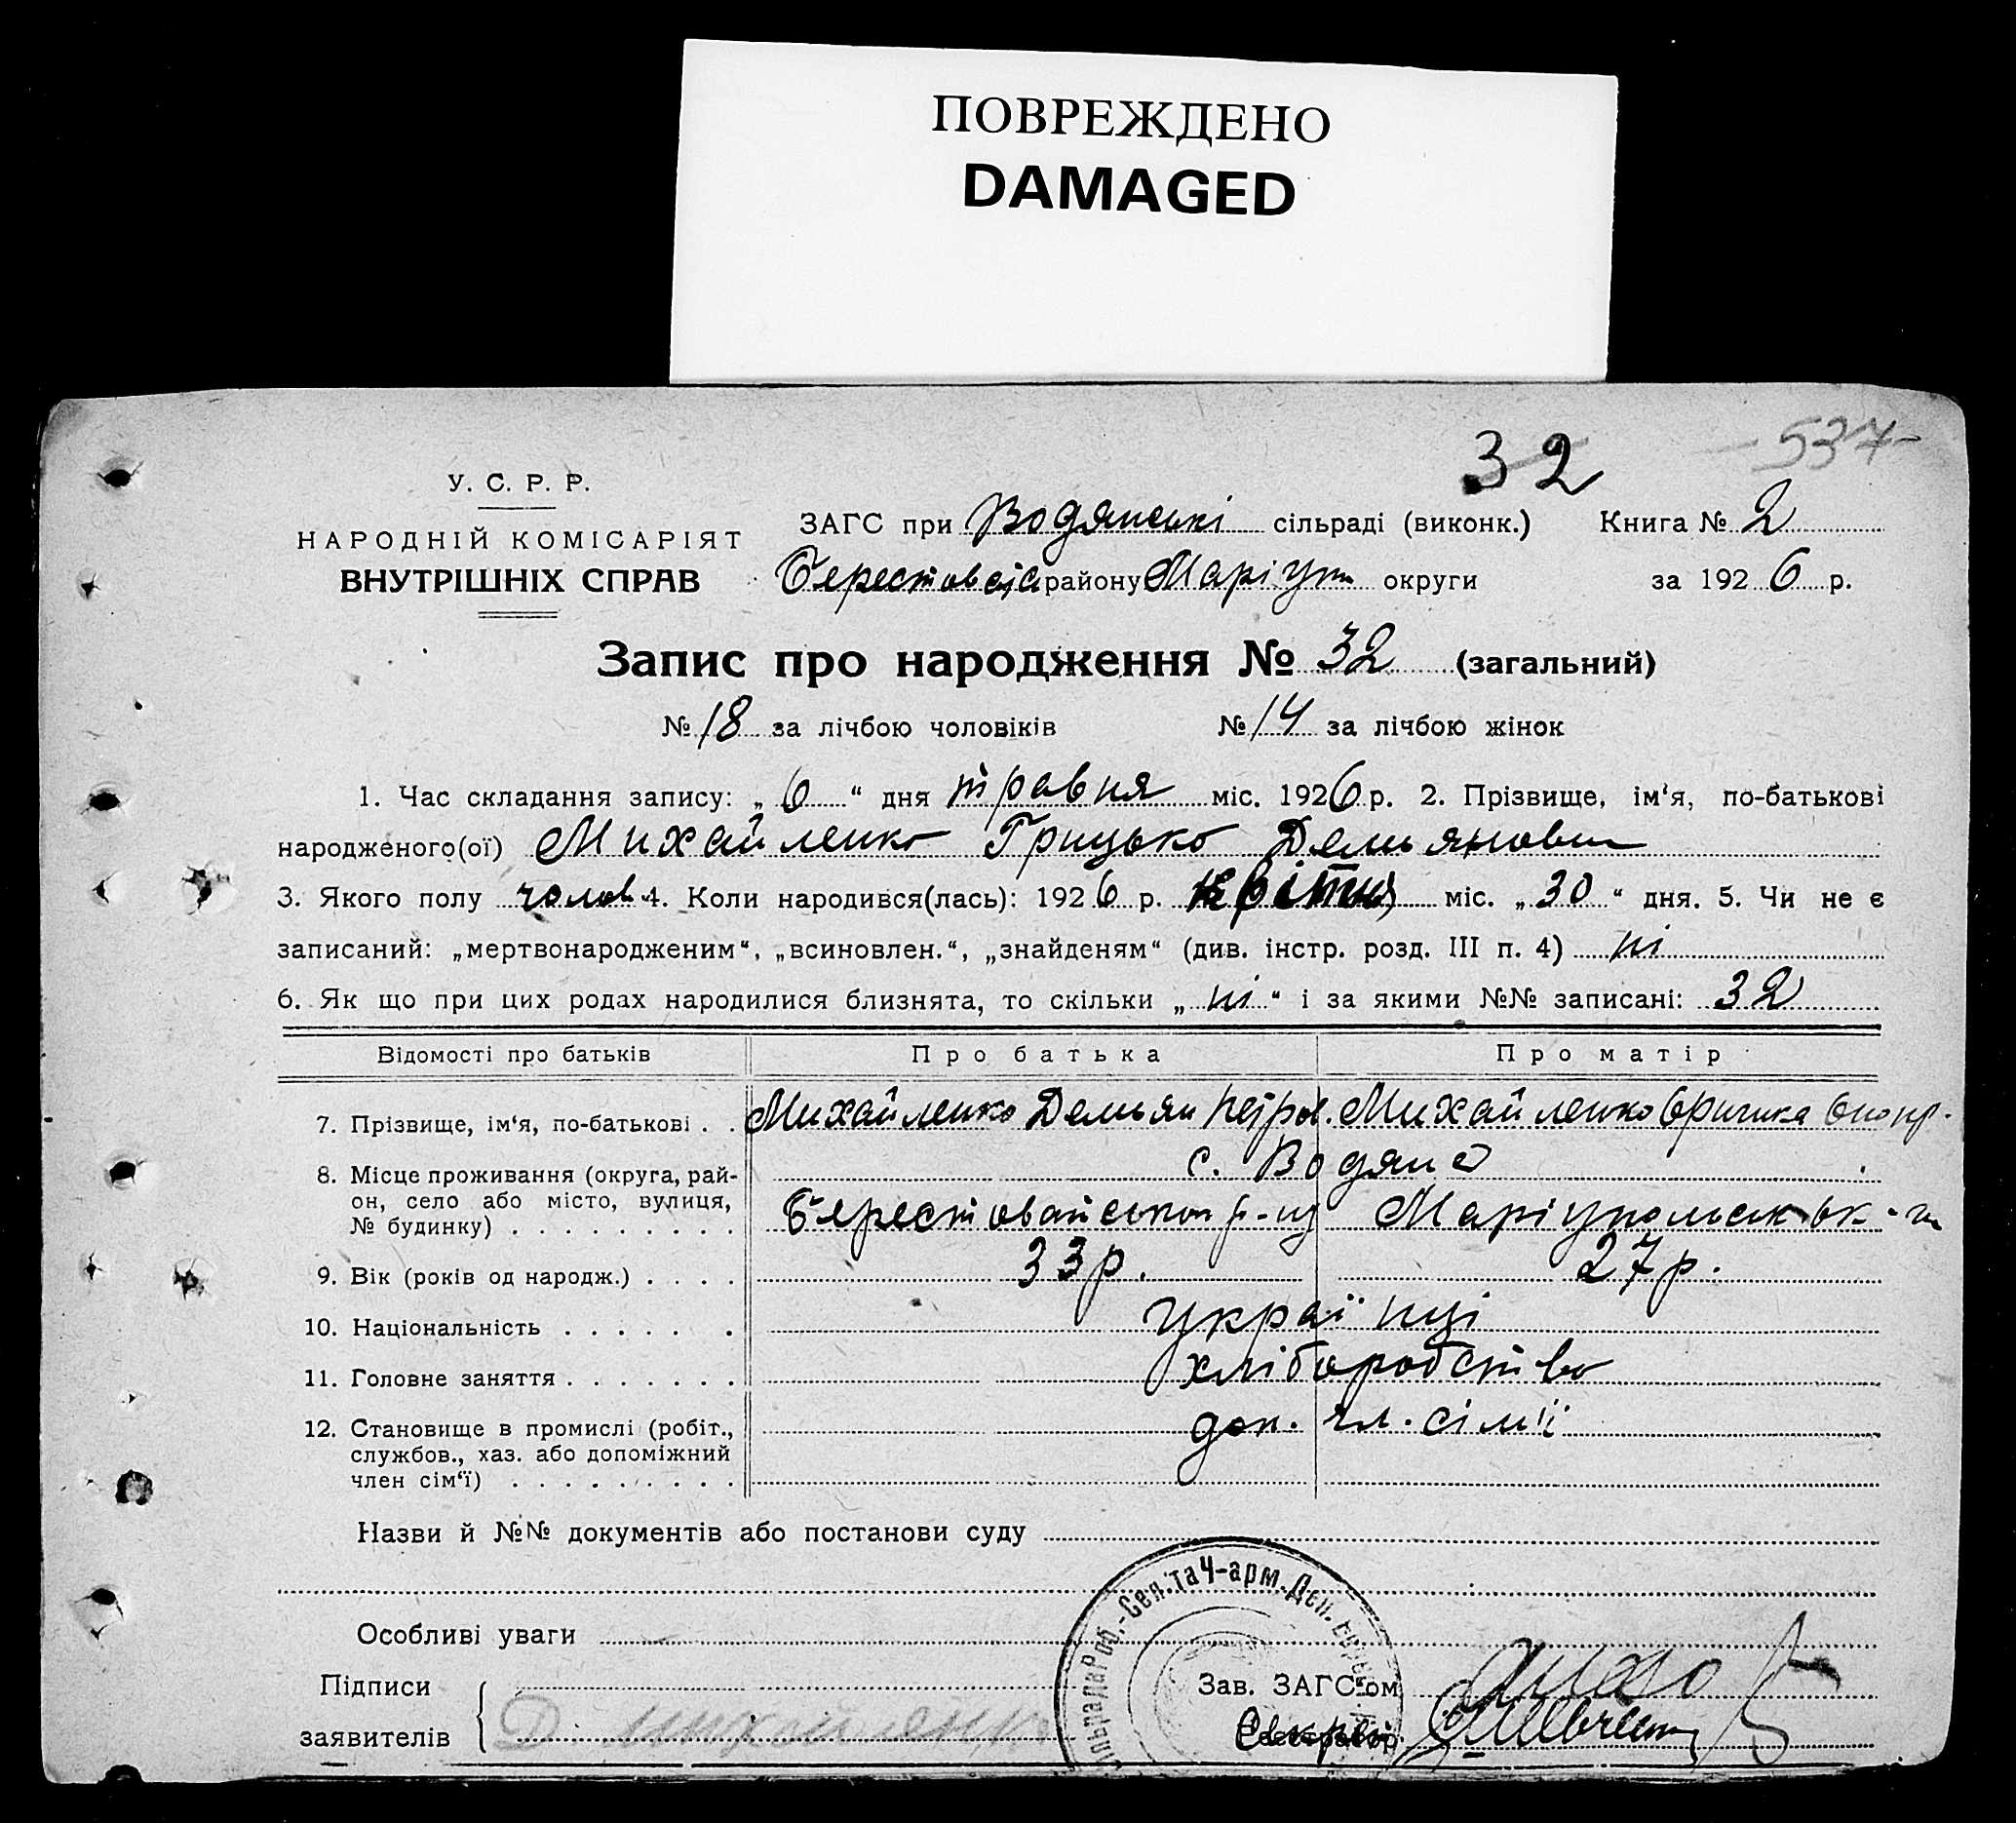 ПОВРЕЖДЕНО
DAMAGED
32 537
У. С. Р. Р.
НАРОДНІЙ КОМІСАРІЯТ
ВНУТРІШНІХ СПРАВ
ЗАГС при Водянські сільраді (виконк.) Книга № 2
району Маріуп округи за 1926 р.
Запис про народження № 32 (загальний)
№ 18 за лічбою чоловіків № 14 за лічбою жінок
1. Час складання запису: „ 6 “ дня травня міс. 1926 р. 2. Прізвище, ім‘я, по-батькові
народженого(ої) Михайленко Грицько Демьянович
3. Якого полу чолов 4. Коли народився(лась): 1926 р. квітня міс. „ 30 “ дня. 5. Чи не є
записаний: „мертвонародженим“, „всиновлен.“, „знайденям“ (див. інстр. розд. III п. 4) ні
6. Як що при цих родах народилися близнята, то скільки „ ні “ і за якими №№ записані: 32
Відомості про батьків Про батька Про матір
7. Прізвище, ім‘я, по-батькові . . Михайленко Демьян Петров. Михайленко
8. Місце проживання (округа, рай-
он, село або місто, вулиця,
№ будинку) . . . . . . . . .
с. Водяне
9. Вік (років од народж.) . . . . 33 р. 27 р.
10. Національність . . . . . . українці
11. Головне заняття . . . . . . . хліборобство
12. Становище в промислі (робіт.,
службов., хаз. або допоміжний
член сім‘ї) . . . . . . . . .
доп. чл. сім'ї
Назви й №№ документів або постанови суду
Роб.-Сел. та Ч-арм. Деп.
Особливі уваги
Підписи
заявителів
Д. Михайленко
Зав. ЗАГС‘ом
Секрет.